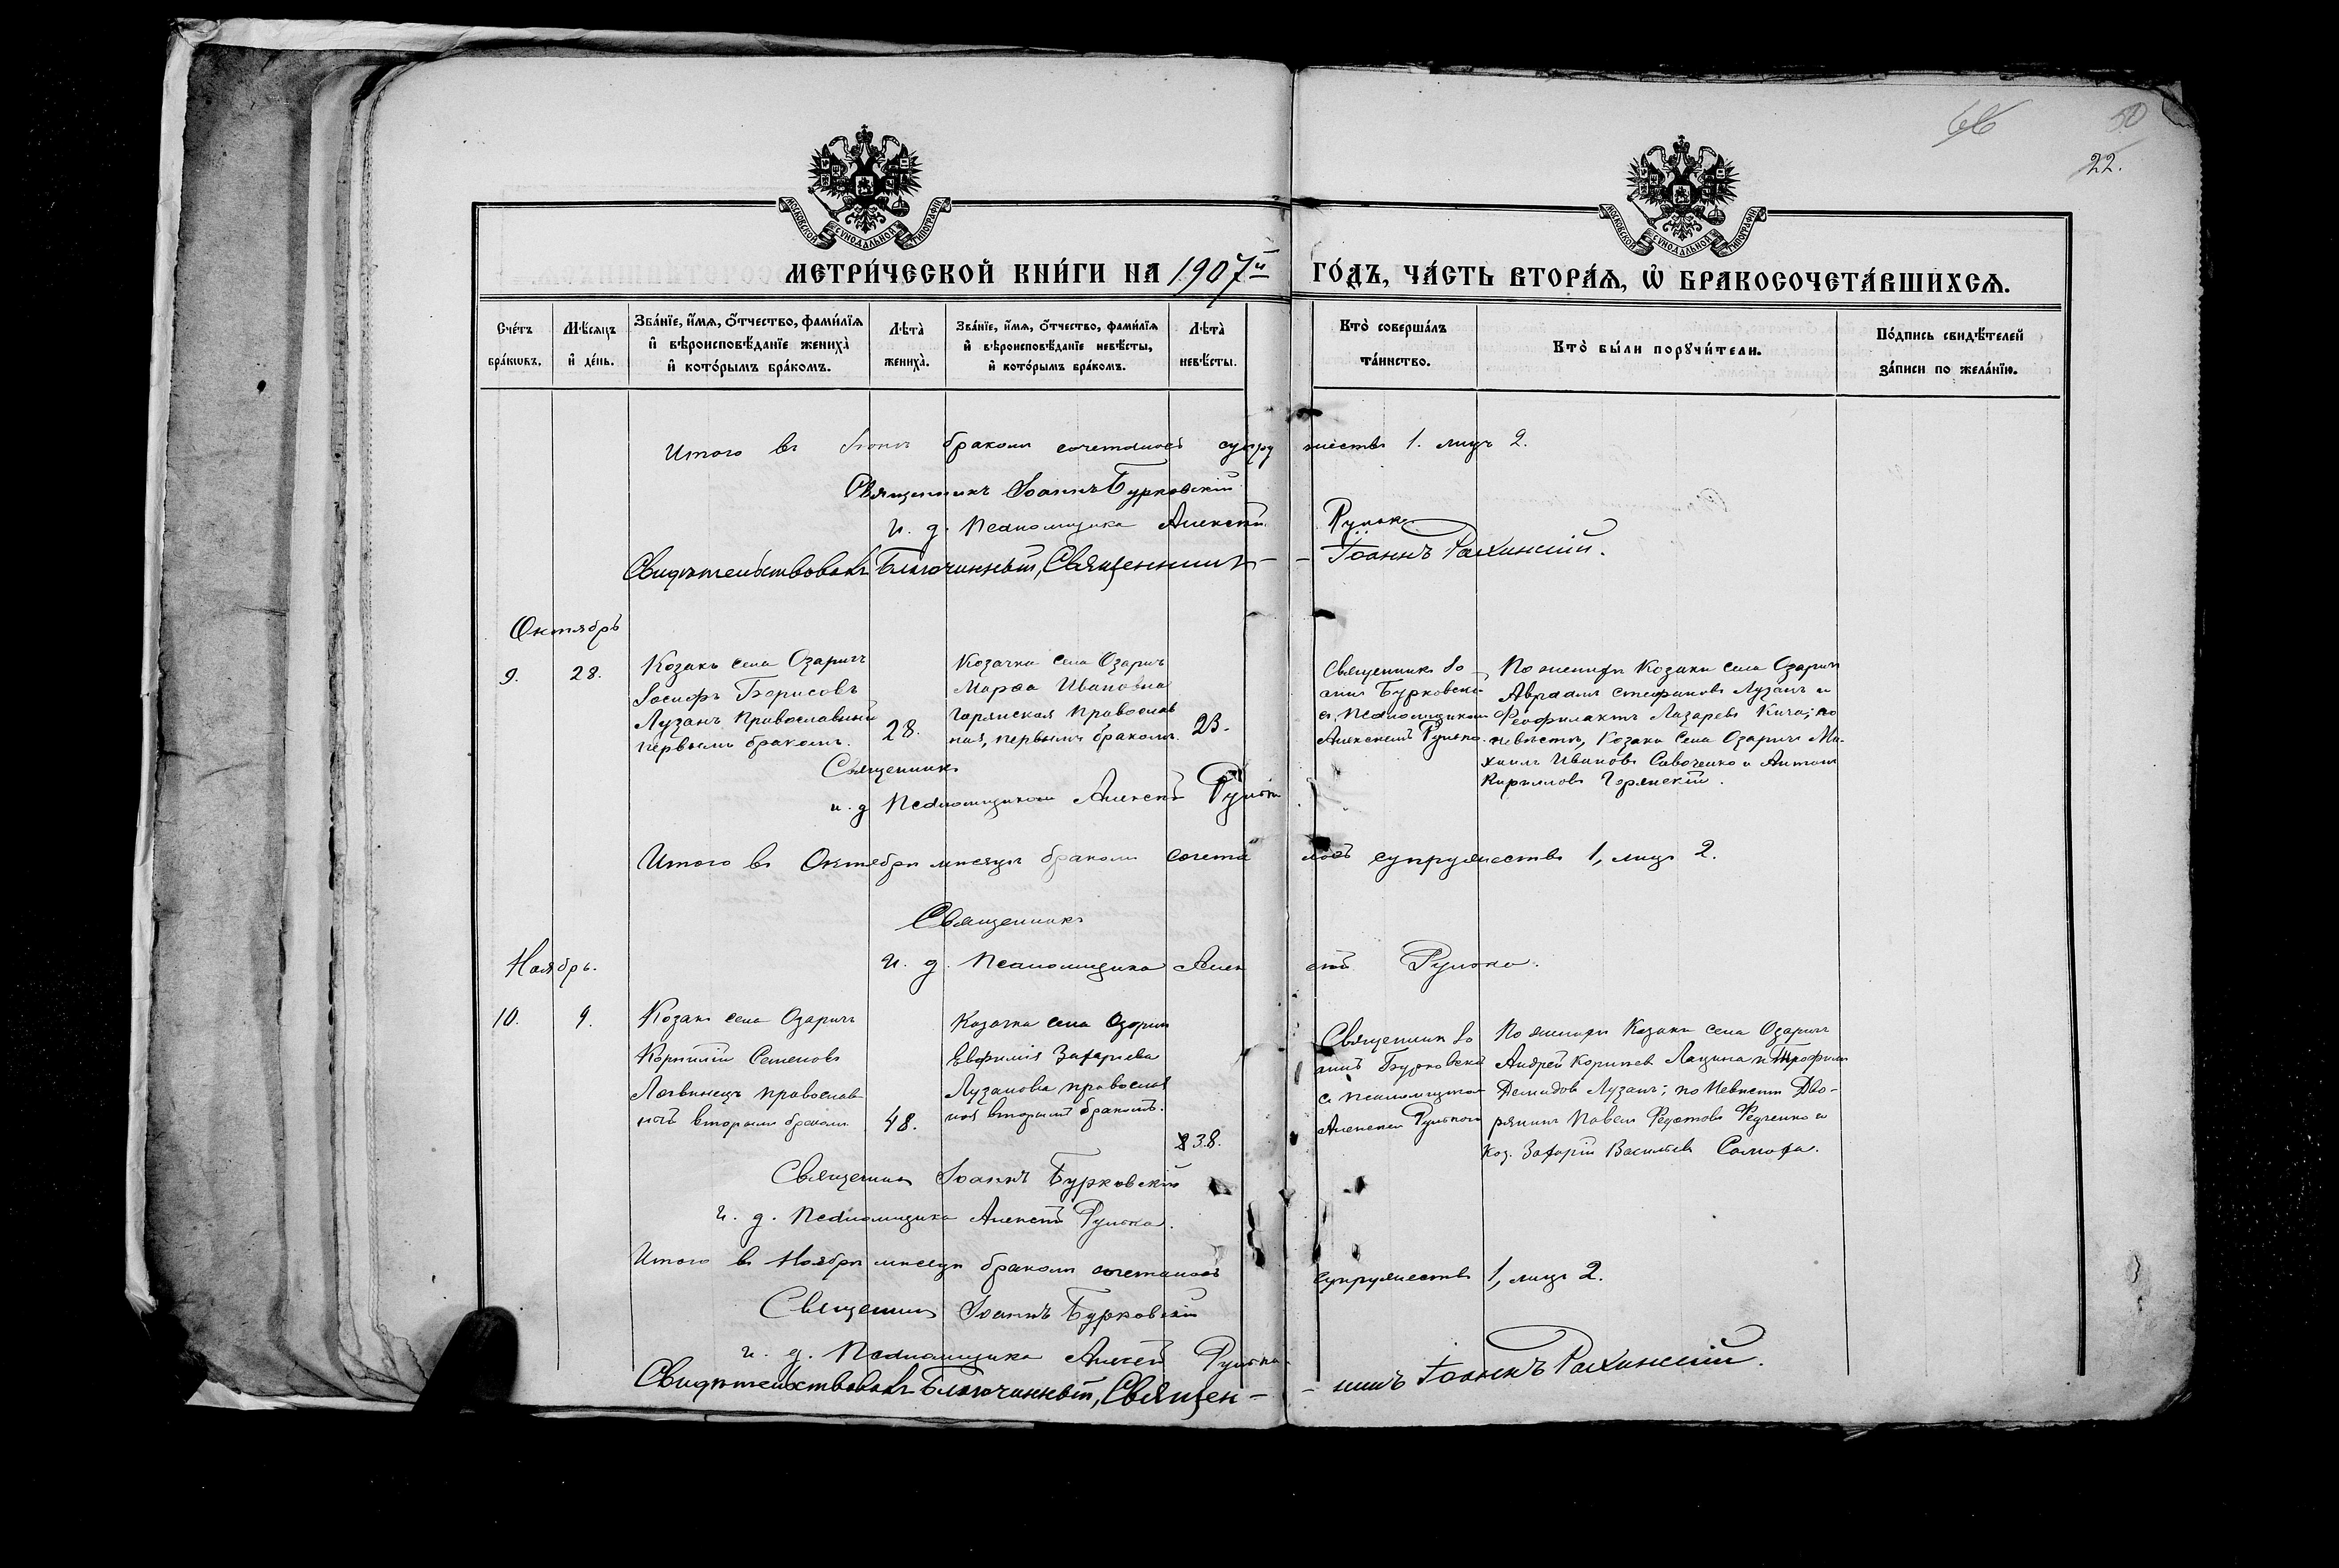 66
50
22.
МОСКОВСКОЙ СУНОДАЛЬНОЙ ТИПОГРАФІИ
МОСКОВСКОЙ СУНОДАЛЬНОЙ ТИПОГРАФІИ
МЕТРИ́ЧЕСКОЙ КНИ́ГИ НА 1907й ГО́ДЪ, ЧА́СТЬ ВТОРА́Ѧ, Ѽ БРАКОСОЧЕТА́ВШИХСѦ.
Сче́тъ бра́кѡвъ.
Мѣ́сяцъ и҆ де́нь.
Зва́нїе, и҆́мѧ, ѻ҆́тчество, фами́лїѧ и҆ вѣроисповѣ́данїе жениха̀ и҆ кото́рымъ бра́комъ.
Лѣта̀ жениха̀.
Зва́нїе, и҆́мѧ, ѻ҆́тчество, фами́лїѧ и҆ вѣроисповѣ́данїе невѣ́сты, и҆ кото́рымъ бра́комъ.
Лѣта̀ невѣ́сты.
Кто̀ соверша́лъ та́инство.
Кто̀ бы́ли порꙋчи́тели.
По́дпись свидѣ́телей за́писи по жела́нїю.
Итого въ бракомъ сочеталось супружествъ 1. лицъ 2.
Священникъ Іоаннъ Бурковскій
И. д. Псаломщика Алексѣй Рулько
Свидѣтельствовалъ Благочинный, Священникъ – Іоаннъ Рахинскій.
Октябрь
9.
28.
Козакъ села Озаричъ
Іосифъ Борисовъ
Лузанъ православный
первымъ бракомъ.
28.
Козачка села Озаричъ
Марѳа Ивановна
Горянская православ
ная, первымъ бракомъ.
23.
Священникъ Іо
аннъ Бурковскій
съ псаломщикомъ
Алексѣемъ Рулько.
По женихѣ Козаки села Озаричъ
Авраамъ Стефановъ Лузанъ и
Феофилактъ Лазаревъ Кича; по
невѣстѣ, Козаки села Озаричъ Ми-
хаилъ Ивановъ Савоченко и Антонъ
Кирилловъ Горянскій.
Священникъ
и. д. Псаломщикомъ Алексѣй Рулько
Итого въ Октябрѣ мѣсяцѣ бракомъ сочеталось супружествъ 1, лицъ 2.
Священникъ
Ноябрь.
И. д. Псаломщика Алексѣй Рулько.
10.
9.
Козакъ села Озаричъ
Корнилій Семеновъ
Логвинецъ православ
ный вторымъ бракомъ
48.
Козачка села Озаричъ
Евфимія Захаріева
Лузанова православ
ная вторымъ бракомъ.
38.
Священникъ Іо
аннъ Бурковскій
съ псаломщикомъ
Алексѣемъ Рулькомъ
По женихѣ Козаки села Озаричъ
Андрей Корнѣевъ Лацина и Трофимъ
Демидовъ Лузанъ; по невѣстѣ Дво-
рянинъ Павелъ Федченко и
Коз. Захарій Васильевъ
Священникъ Іоаннъ Бурковскій
И. д. Псаломщика Алексѣй Рулько.
Итого въ Ноябрѣ мѣсяцѣ бракомъ сочеталось супружествъ 1, лицъ 2.
Священникъ Іоаннъ Бурковскій
и. д. Псаломщика Алексѣй Рулько
Свидѣтельствовалъ Благочинный, Священ– –никъ Іоаннъ Рахинскій.